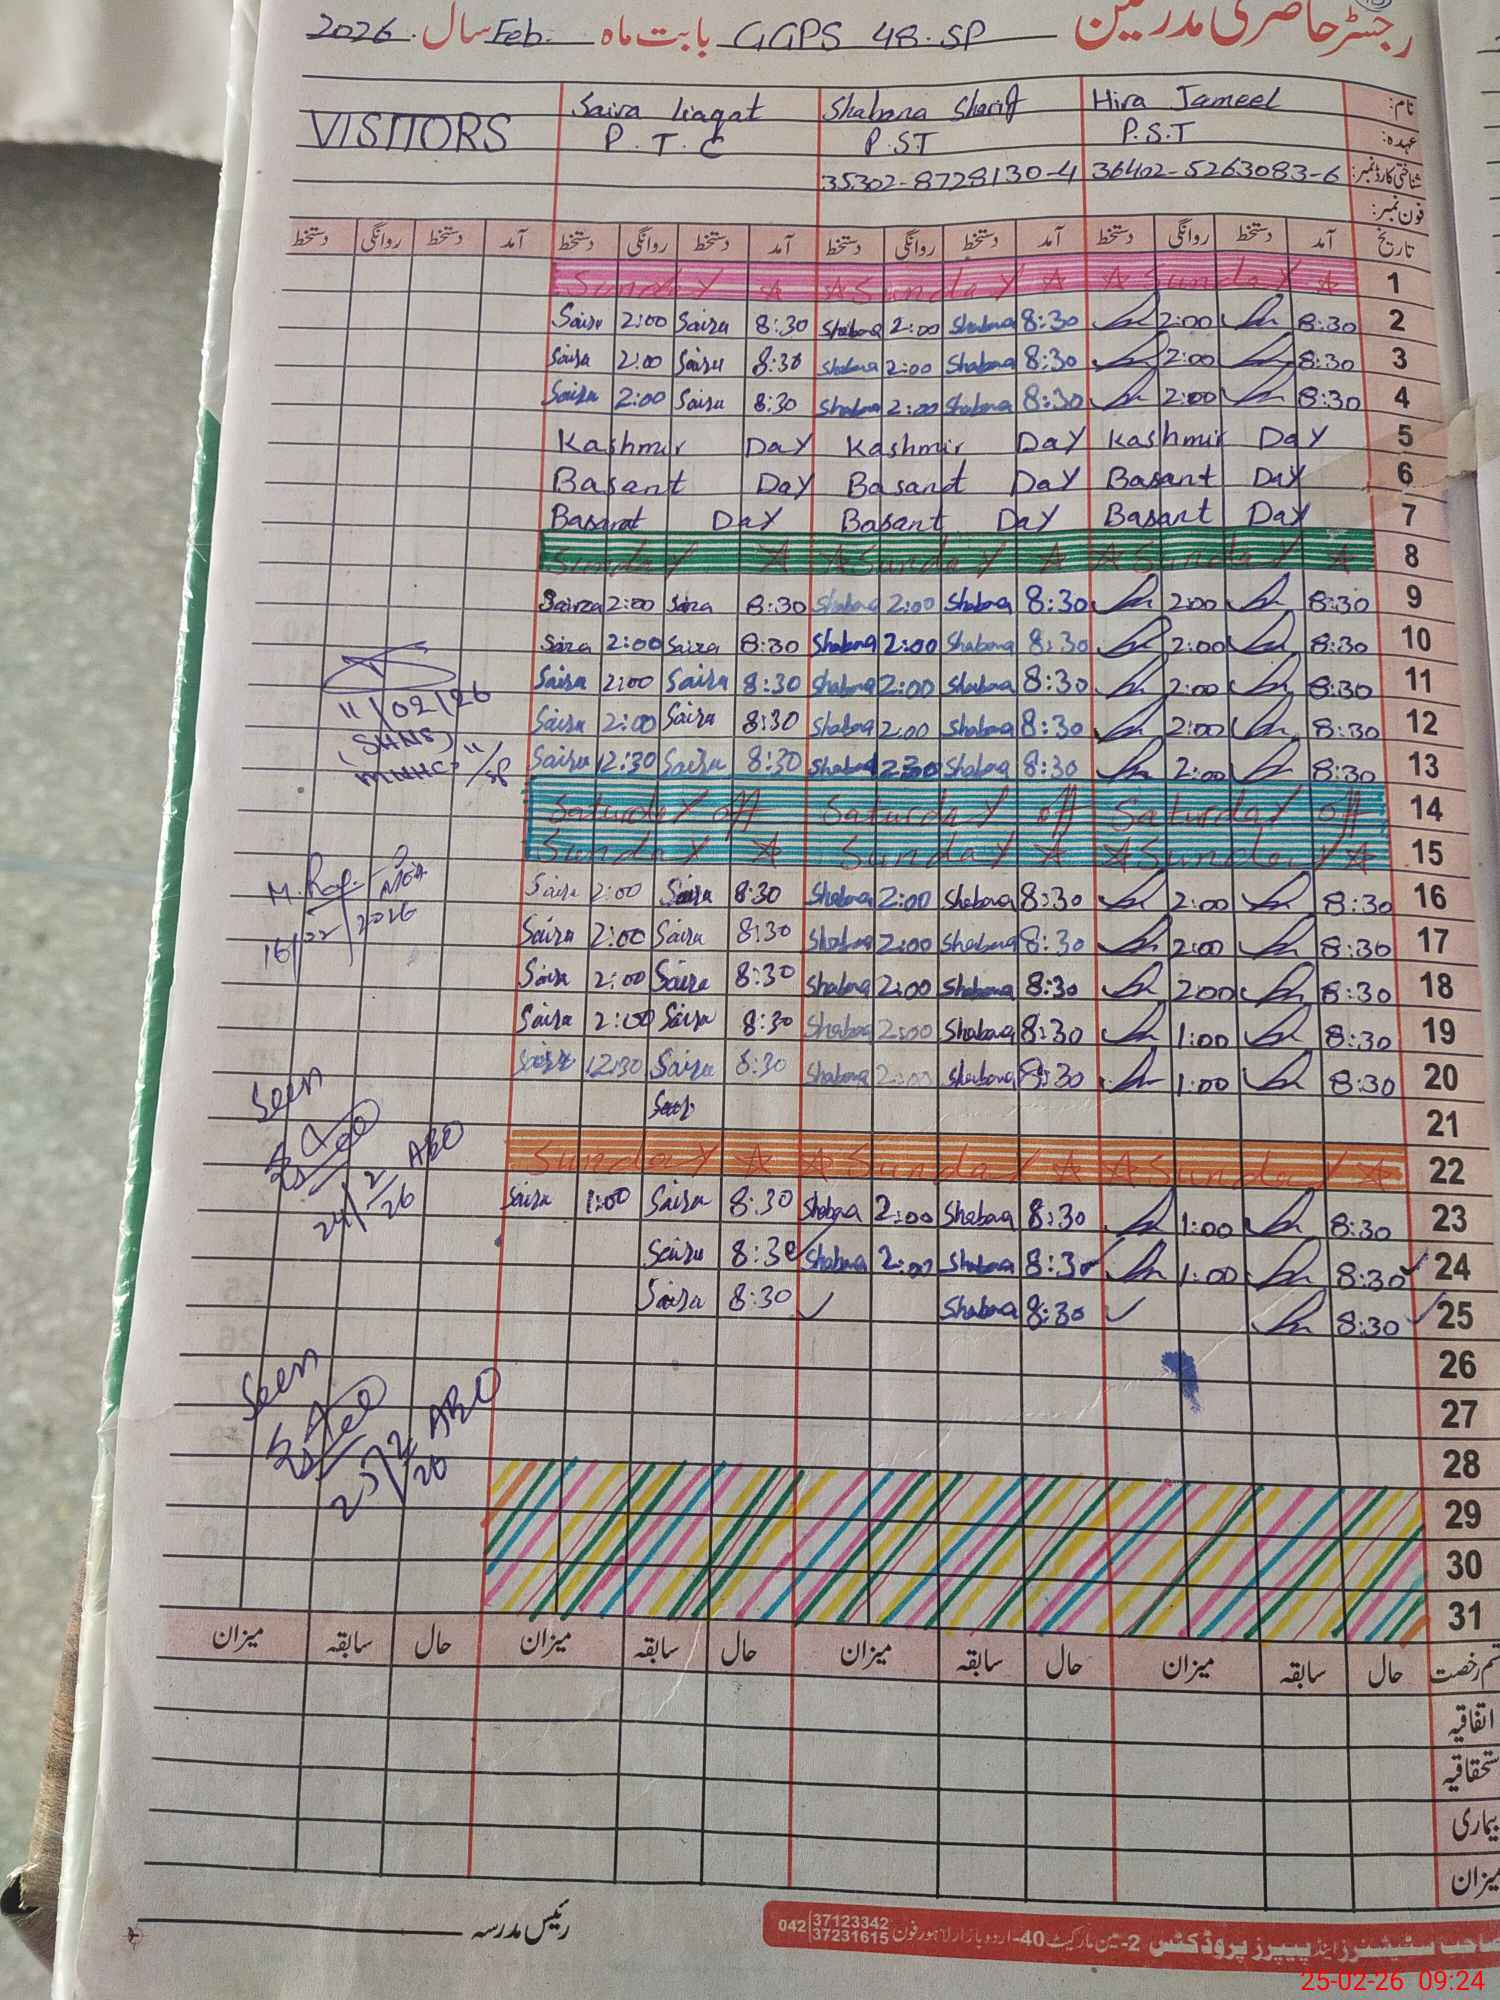 رجسٹر حاضری مدرسین GGPS 48.SP بابت ماہ Feb. سال 2026
نام: Hira Jameel Shabana Sharif Saira Liaqat VISITORS
عہدہ: P.S.T P.ST P.T.C
شناختی کارڈ نمبر: 36402-5263083-6 35302-8728130-4
فون نمبر:
تاریخ آمد دستخط روانگی دستخط آمد دستخط روانگی دستخط آمد دستخط روانگی دستخط آمد دستخط روانگی دستخط
1 Sunday Sunday Sunday
2 8:30 2:00 8:30 Shabana 2:00 Shabana 8:30 Saira 2:00 Saira
3 8:30 2:00 8:30 Shabana 2:00 Shabana 8:30 Saira 2:00 Saira
4 8:30 2:00 8:30 Shabana 2:00 Shabana 8:30 Saira 2:00 Saira
5 Kashmir Day Kashmir Day Kashmir Day
6 Basant Day Basant Day Basant Day
7 Basant Day Basant Day Basant Day
8 Sunday Sunday Sunday
9 8:30 2:00 8:30 Shabana 2:00 Shabana 8:30 Saira 2:00 Saira
10 8:30 2:00 8:30 Shabana 2:00 Shabana 8:30 Saira 2:00 Saira
11 8:30 2:00 8:30 Shabana 2:00 Shabana 8:30 Saira 2:00 Saira
11/02/26
12 8:30 2:00 8:30 Shabana 2:00 Shabana 8:30 Saira 2:00 Saira
(SHNS)
13 8:30 2:00 8:30 Shabana Shabana 8:30 Saira 12:30 Saira
14 Saturday off Saturday off Saturday off
15 Sunday Sunday Sunday
16 8:30 2:00 8:30 Shabana 2:00 Shabana 8:30 Saira 2:00 Saira
16/02/2026
17 8:30 2:00 8:30 Shabana 2:00 Shabana 8:30 Saira 2:00 Saira
18 8:30 2:00 8:30 Shabana 2:00 Shabana 8:30 Saira 2:00 Saira
19 8:30 1:00 8:30 Shabana 2:00 Shabana 8:30 Saira 2:00 Saira
20 8:30 1:00 8:30 Shabana 2:00 Shabana 8:30 Saira 12:30 Saira
21
Seen
22 Sunday Sunday Sunday
AEO
24/2/26
23 8:30 1:00 8:30 Shabana 2:00 Shabana 8:30 Saira 1:00 Saira
24 8:30 1:00 8:30 Shabana 2:00 Shabana 8:30 Saira
25 8:30 8:30 Shabana 8:30 Saira
26
Seen
27
AEO
28
29
30
31
قسم رخصت حال سابقہ میزان حال سابقہ میزان حال سابقہ میزان حال سابقہ میزان
اتفاقیہ
استحقاقیہ
بیماری
میزان
رئیس مدرسہ
صاحب سٹیشنرز اینڈ پیپرز پروڈکٹس 2-مین مارکیٹ 40-اردو بازار لاہور فون 042 37123342 37231615
25-02-26 09:24